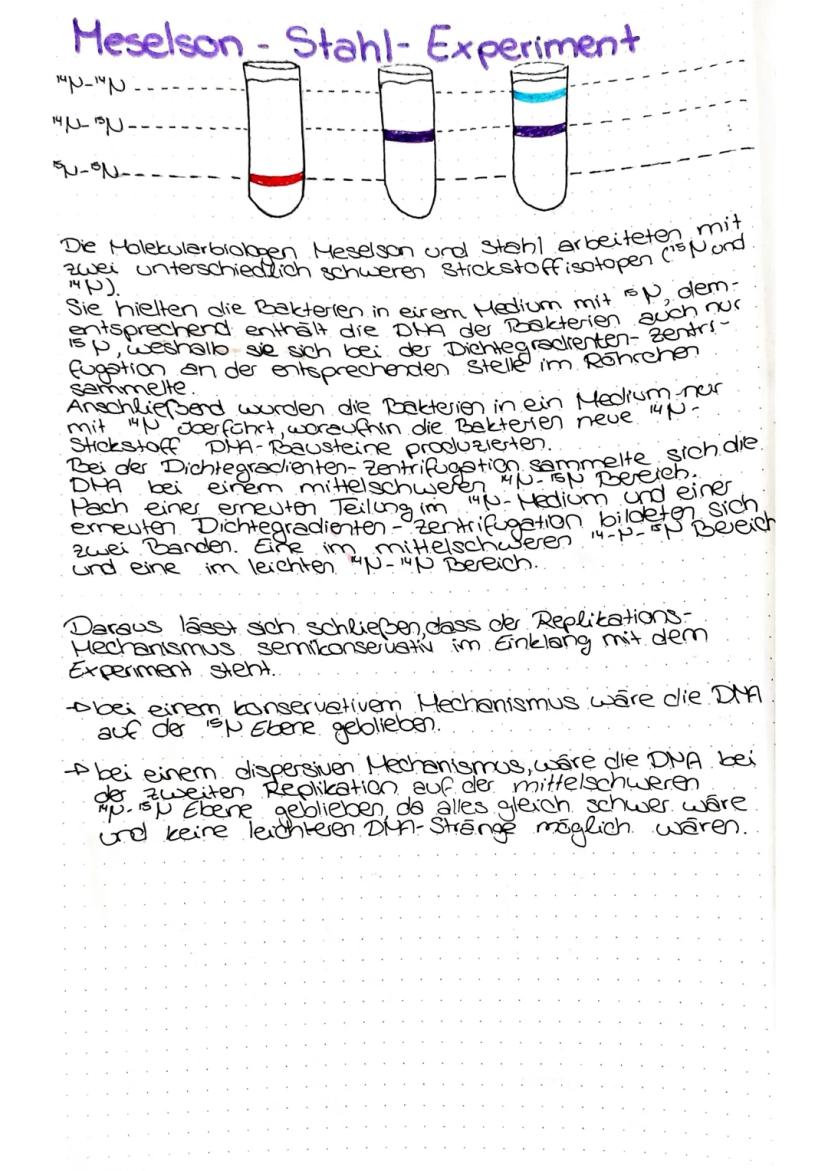 Meselson - Stahl - Experiment
¹⁴N-¹⁴N
¹⁴N-¹⁵N
¹⁵N-¹⁵N
Die Molekularbiologen Meselson und Stahl arbeiteten mit
zwei unterschiedlich schweren Stickstoffisotopen (¹⁵N und
¹⁴N).
Sie hielten die Bakterien in einem Medium mit ¹⁵N, dem-
entsprechend enthält die DNA der Bakterien auch nur
¹⁵N, weshalb sie sich bei der Dichtegradienten-Zentri-
fugation an der entsprechenden Stelle im Röhrchen
sammelte.
Anschließend wurden die Bakterien in ein Medium nur
mit ¹⁴N überführt, woraufhin die Bakterien neue ¹⁴N-
Stickstoff DNA-Bausteine produzierten.
Bei der Dichtegradienten-Zentrifugation sammelte sich die
DNA bei einem mittelschweren ¹⁴N-¹⁵N Bereich.
Nach einer erneuten Teilung im ¹⁴N-Medium und einer
erneuten Dichtegradienten-Zentrifugation bildeten sich
zwei Banden. Eine im mittelschweren ¹⁴-N-¹⁵N Bereich
und eine im leichten ¹⁴N-¹⁴N Bereich.
Daraus lässt sich schließen, dass der Replikations-
Mechanismus semikonservativ im Einklang mit dem
Experiment steht.
→ bei einem konservativem Mechanismus wäre die DNA
auf der ¹⁵N Ebene geblieben.
→ bei einem dispersiven Mechanismus, wäre die DNA bei
der zweiten Replikation auf der mittelschweren
¹⁴N-¹⁵N Ebene geblieben, da alles gleich schwer wäre
und keine leichteren DNA-Stränge möglich wären.